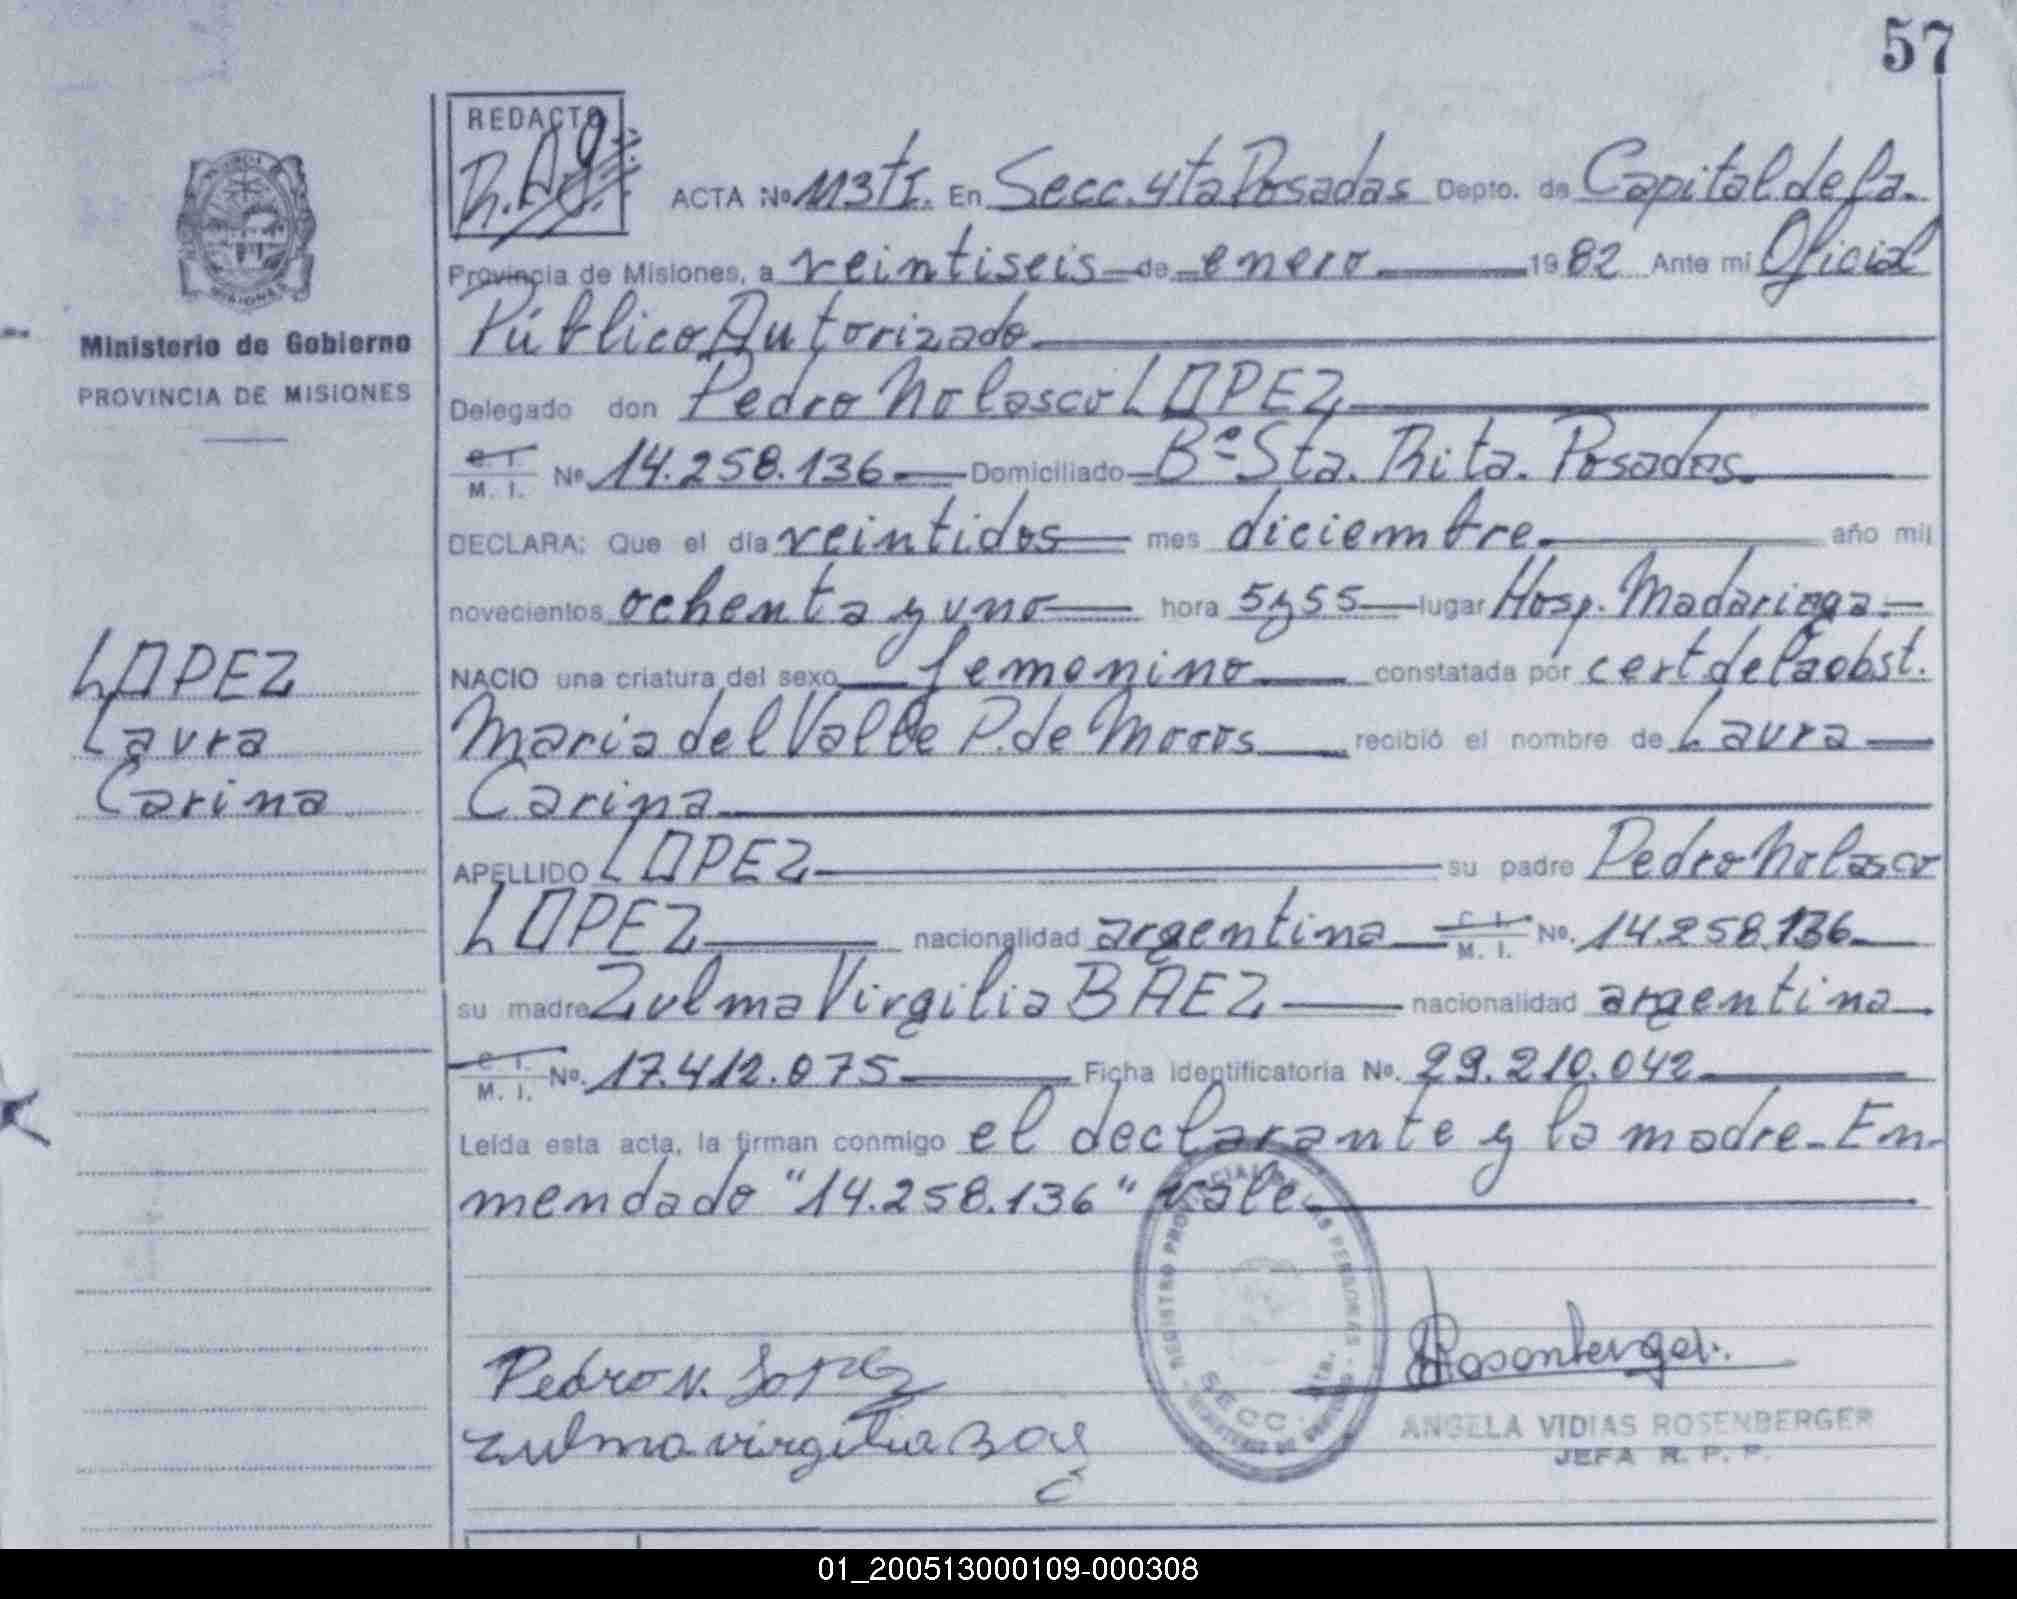 57
REDACTO
ACTA Nº 113 tI. En Secc. 4ta Posadas Depto. de Capital de la.
Provincia de Misiones, a veintiseis de enero 1982 Ante mi Oficial
Público Autorizado
Delegado don Pedro Nolasco LOPEZ
C. I.
M. I. Nº 14.258.136 Domiciliado Bº Sta. Rita. Posadas.
DECLARA: Que el día veintidos mes diciembre. año mil
novecientos ochenta y uno hora 5 y 55 lugar Hosp. Madariaga.
NACIO una criatura del sexo femenino constatada por cert de la obst.
Maria del Valle P. de Moros recibió el nombre de Laura
Carina
APELLIDO LOPEZ su padre Pedro Nolasco
LOPEZ nacionalidad argentina C. I.
M. I. No. 14.258.136
su madre Zulma Virgilia BAEZ nacionalidad argentina
C. I.
M. I. No. 17.412.075 Ficha identificatoria No. 29.210.042
Leída esta acta, la firman conmigo el declarante y la madre. En-
mendado "14.258.136" vale.
MISIONES
Ministerio de Gobierno
PROVINCIA DE MISIONES
LOPEZ
Laura
Carina
Pedro N. Lopez
Zulma virgilia Bae
REGISTRO PROVINCIAL DE LAS PERSONAS
SECC. 4ta.
Rosenberger.
ANGELA VIDIAS ROSENBERGER
JEFA R. P. P.
01_200513000109-000308